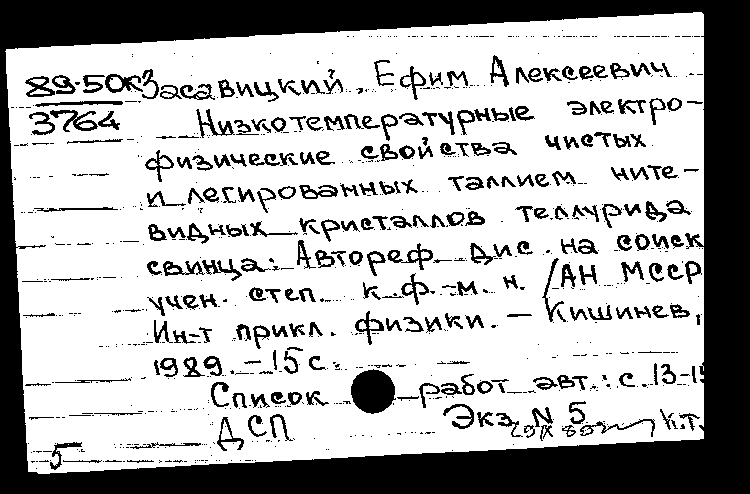 89-50к3 Засавицкий, Ефим Алексеевич
3764 Низкотемпературные электро-
физические свойства чистых
и легированных таллием ните-
видных кристаллов теллурида
свинца: Автореф. дис. на соиск
учен. степ. к.ф.-м.н. /АН МССР
Ин-т прикл. физики. – Кишинев,
1989. – 15 с.
Список работ авт.: с. 13-15
ДСП Экз. N 5
к.т.
5